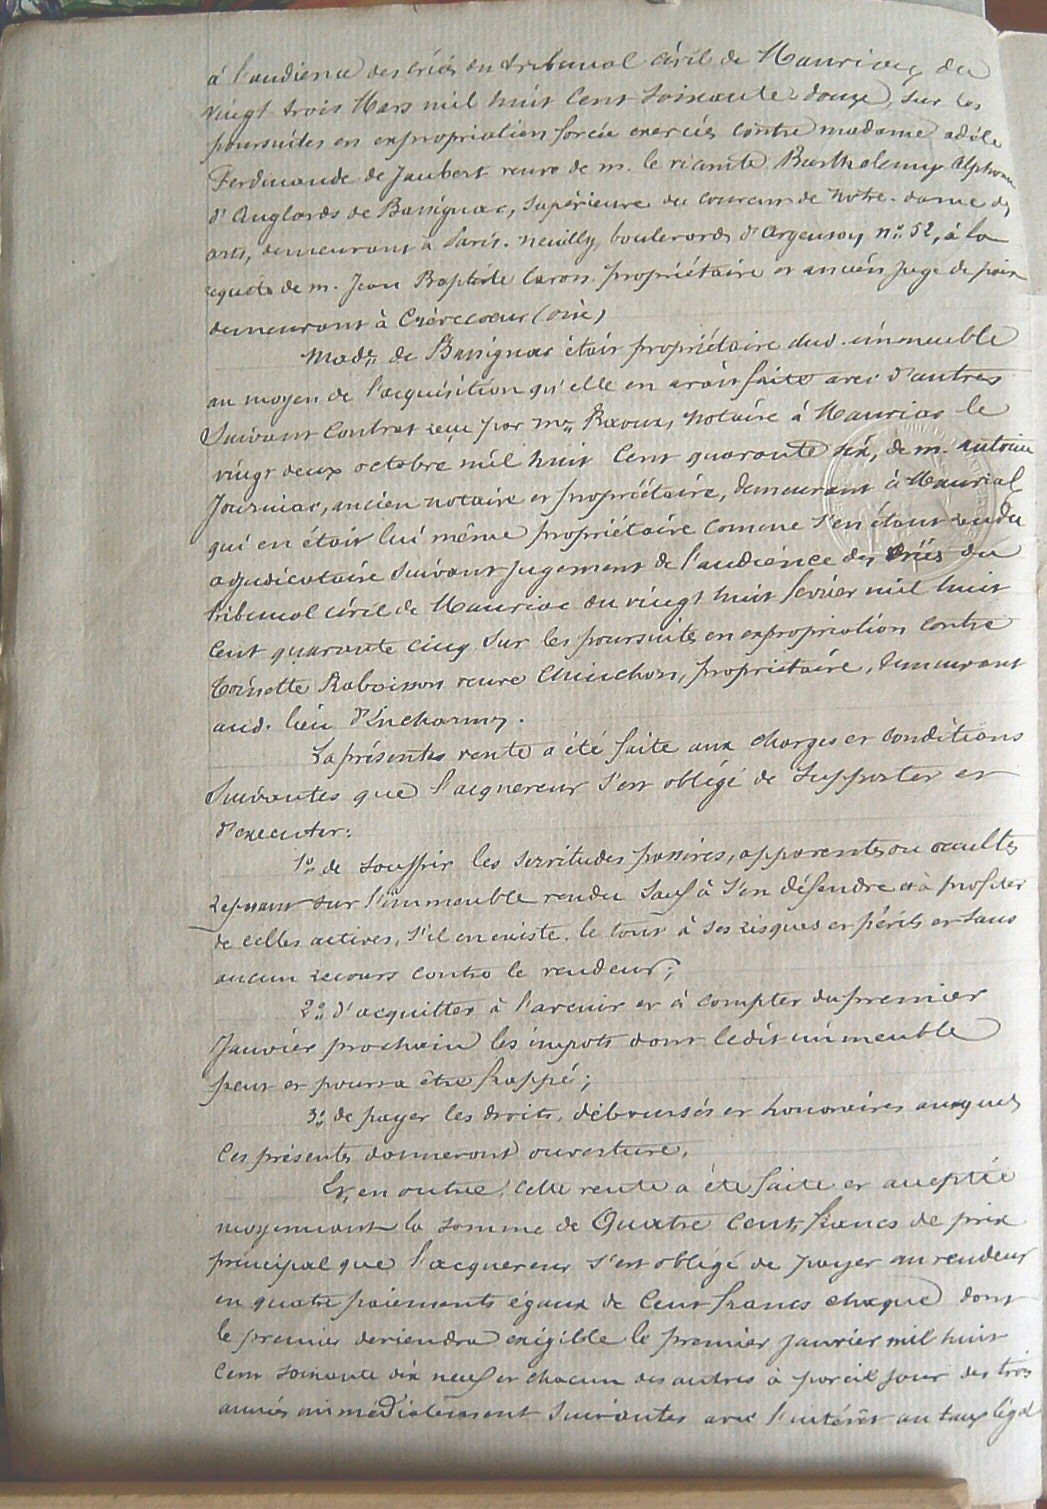 à l'audience des criées du tribunal civil de Mauriac, du
vingt trois Mars mil huit Cent soixante douze, sur les
poursuites en expropriation forcée exercées contre madame adèle
Ferdinande de Jaubert veuve de m. le vicomte Barthelemy Alphonse
d'Anglards de Bassignac, Supérieure du Couvent de Notre-dame des
arts, demeurant à Paris-neuilly boulevard d'Argenson, n.° 52, à la
requête de m. Jean Baptiste Caron propriétaire et ancien juge de paix
demeurant à Crèvecoeur (oise)
Made de Bassignac était propriétaire dud. immeuble
au moyen de l'acquisition qu'elle en avait faite avec d'autres
Suivant Contrat reçu par me, Notaire à Mauriac le
vingt deux octobre mil huit Cent quarante six, de m. antoine
Journiac, ancien notaire et propriétaire, demeurant à Mauriac
qui en était lui même propriétaire comme s'en étant rendu
adjudicataire suivant jugement de l'audience des Criées du
tribunal civil de Mauriac du vingt huit fevrier mil huit
Cent quarante cinq sur les poursuites en expropriation contre
Toinette Raboisson veuve Chinchon, propriétaire, demeurant
aud. lieu d'Encharmes.
La présente vente a été faite aux charges et conditions
Suivantes que l'acquereur s'est obligé de supporter et
d'executer:
1° de souffrir les servitudes passives, apparentes ou occultes
Reposant sur l'immeuble vendu sauf à s'en défendre et à profiter
de celles actives, s'il en existe, le tout à ses risques et périls et sans
aucun recours contre le vendeur;
2° d'acquitter à l'avenir et à compter du premier
Janvier prochain les impots dont ledit immeuble
peut et pourra être frappé;
3° de payer les droits, déboursés et honoraires auxquels
Ces présentes donneront ouverture.
Et, en outre, Cette vente a été faite et acceptée
moyennant la somme de Quatre Cents francs de prix
principal que l'acquereur s'est obligé de payer au vendeur
en quatre paiements égaux de Cent francs chaque dont
le premier deviendra exigible le premier janvier mil huit
Cent soixante dix neuf et chacun des autres à pareil jour des trois
années immédiatement suivantes avec l'intérêt au taux légal